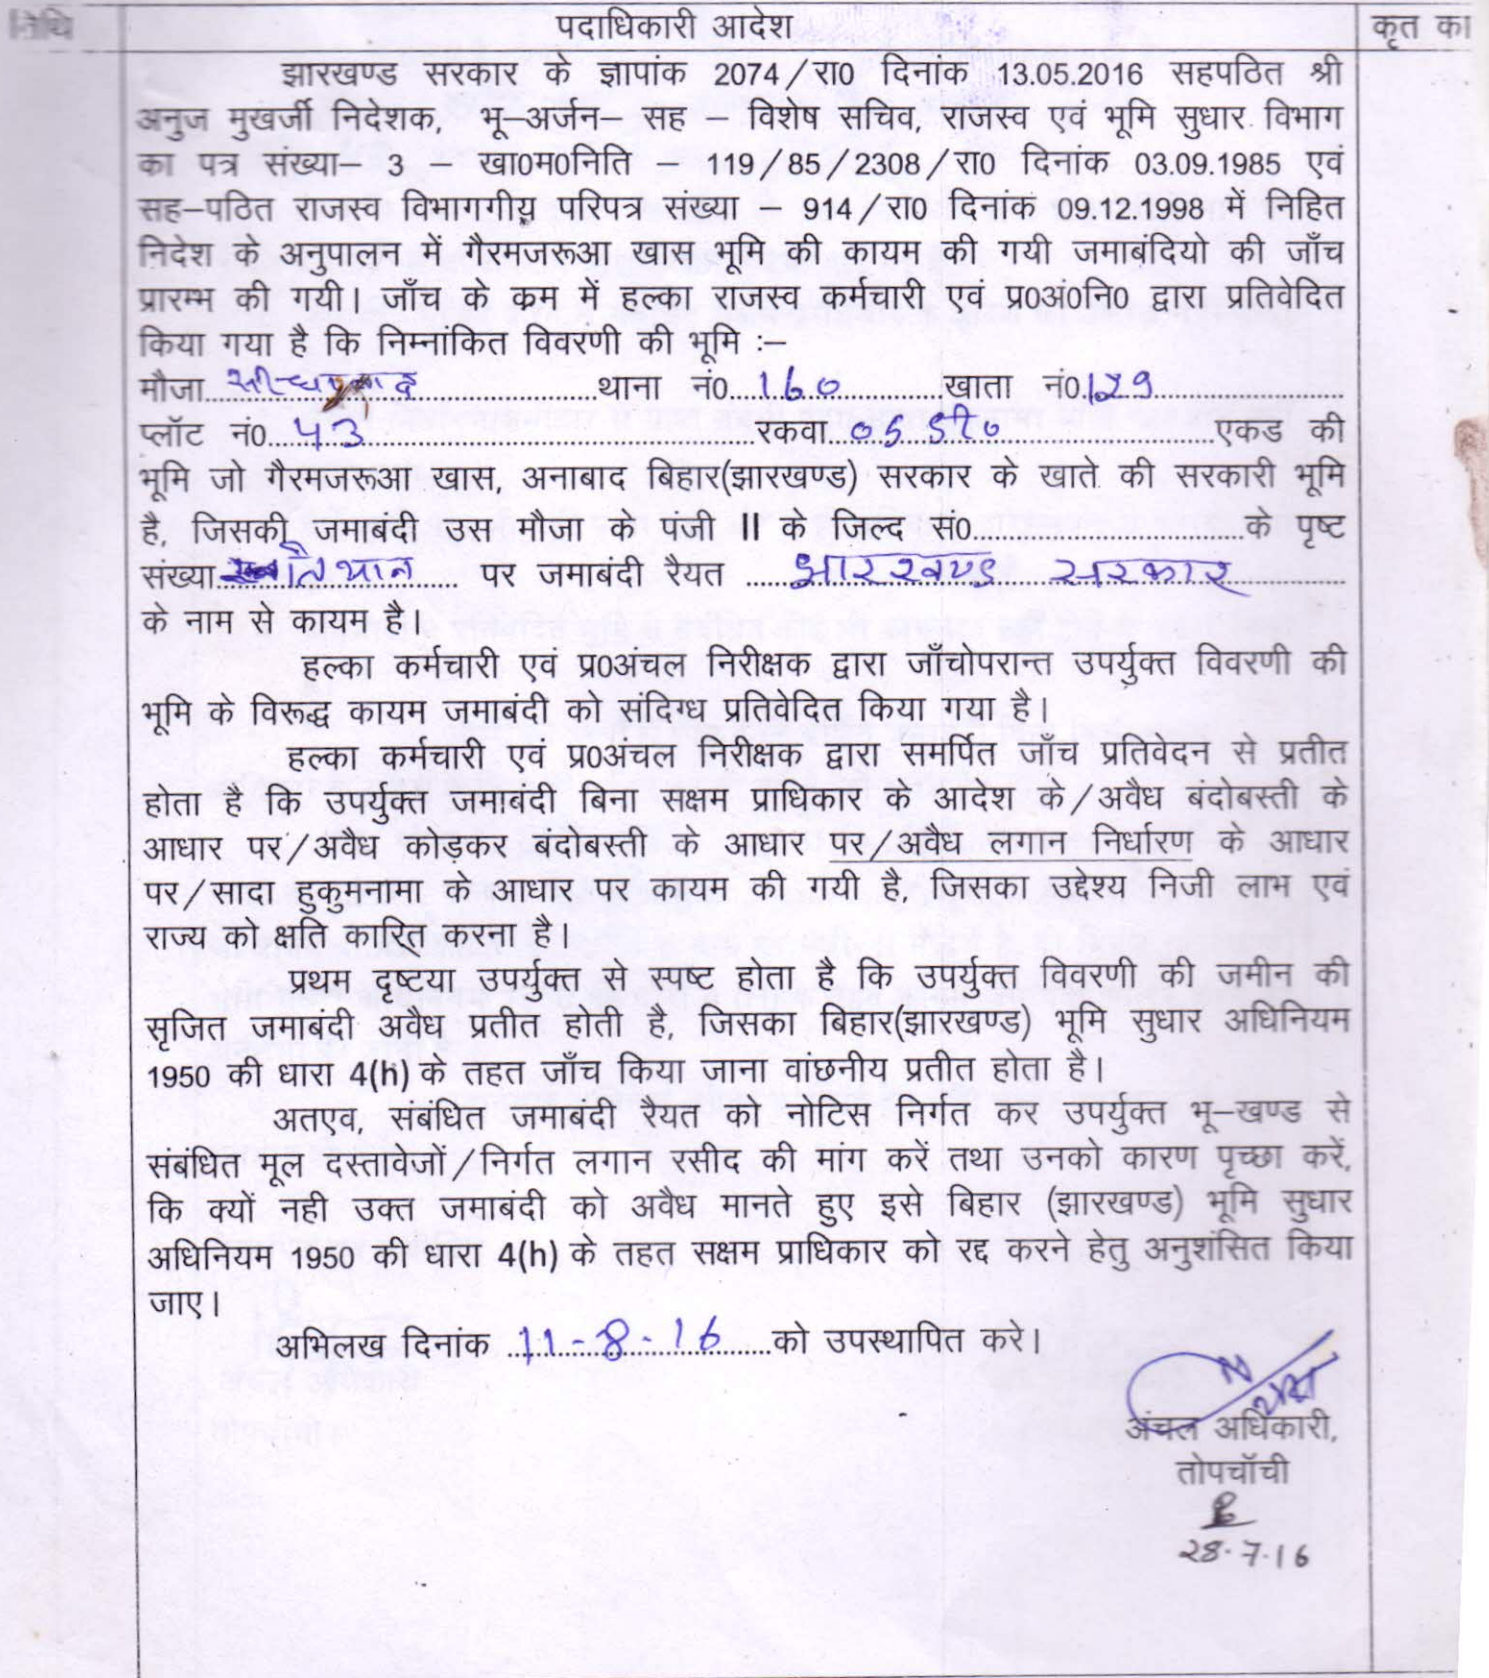 तिथि पदाधिकारी आदेश कृत का
झारखण्ड सरकार के ज्ञापांक 2074/रा0 दिनांक 13.05.2016 सहपठित श्री
अनुज मुखर्जी निदेशक, भू–अर्जन– सह – विशेष सचिव, राजस्व एवं भूमि सुधार विभाग
का पत्र संख्या– 3 – खा0म0निति – 119/85/2308/रा0 दिनांक 03.09.1985 एवं
सह–पठित राजस्व विभागगीय परिपत्र संख्या – 914/रा0 दिनांक 09.12.1998 में निहित
निदेश के अनुपालन में गैरमजरूआ खास भूमि की कायम की गयी जमाबंदियो की जाँच
प्रारम्भ की गयी। जाँच के क्रम में हल्का राजस्व कर्मचारी एवं प्र0अं0नि0 द्वारा प्रतिवेदित
किया गया है कि निम्नांकित विवरंणी की भूमि :–
मौजा.....थाना नं0..160.....खाता नं0.129.....
प्लॉट नं0...43.....रकवा 05 डी0.....एकड की
भूमि जो गैरमजरूआ खास, अनाबाद बिहार(झारखण्ड) सरकार के खाते की सरकारी भूमि
है, जिसकी जमाबंदी उस मौजा के पंजी II के जिल्द सं0.....के पृष्ट
संख्या..... पर जमाबंदी रैयत .....झारखण्ड सरकार
के नाम से कायम है।
हल्का कर्मचारी एवं प्र0अंचल निरीक्षक द्वारा जाँचोपरान्त उपर्युक्त विवरणी की
भूमि के विरूद्ध कायम जमाबंदी को संदिग्ध प्रतिवेदित किया गया है।
हल्का कर्मचारी एवं प्र0अंचल निरीक्षक द्वारा समर्पित जाँच प्रतिवेदन से प्रतीत
होता है कि उपर्युक्त जमाबंदी बिना सक्षम प्राधिकार के आदेश के/अवैध बंदोबस्ती के
आधार पर/अवैध कोड़कर बंदोबस्ती के आधार पर/अवैध लगान निर्धारण के आधार
पर/सादा हुकुमनामा के आधार पर कायम की गयी है, जिसका उद्देश्य निजी लाभ एवं
राज्य को क्षति कारित करना है।
प्रथम दृष्टया उपर्युक्त से स्पष्ट होता है कि उपर्युक्त विवरणी की जमीन की
सृजित जमाबंदी अवैध प्रतीत होती है, जिसका बिहार(झारखण्ड) भूमि सुधार अधिनियम
1950 की धारा 4(h) के तहत जाँच किया जाना वांछनीय प्रतीत होता है।
अतएव, संबंधित जमाबंदी रैयत को नोटिस निर्गत कर उपर्युक्त भू–खण्ड से
संबंधित मूल दस्तावेजों/निर्गत लगान रसीद की मांग करें तथा उनको कारण पृच्छा करें,
कि क्यों नही उक्त जमाबंदी को अवैध मानते हुए इसे बिहार (झारखण्ड) भूमि सुधार
अधिनियम 1950 की धारा 4(h) के तहत सक्षम प्राधिकार को रद्द करने हेतु अनुशंसित किया
जाए।
अभिलख दिनांक ..11-8-16.....को उपस्थापित करे।
अंचल अधिकारी,
तोपचाँची
28-7-16